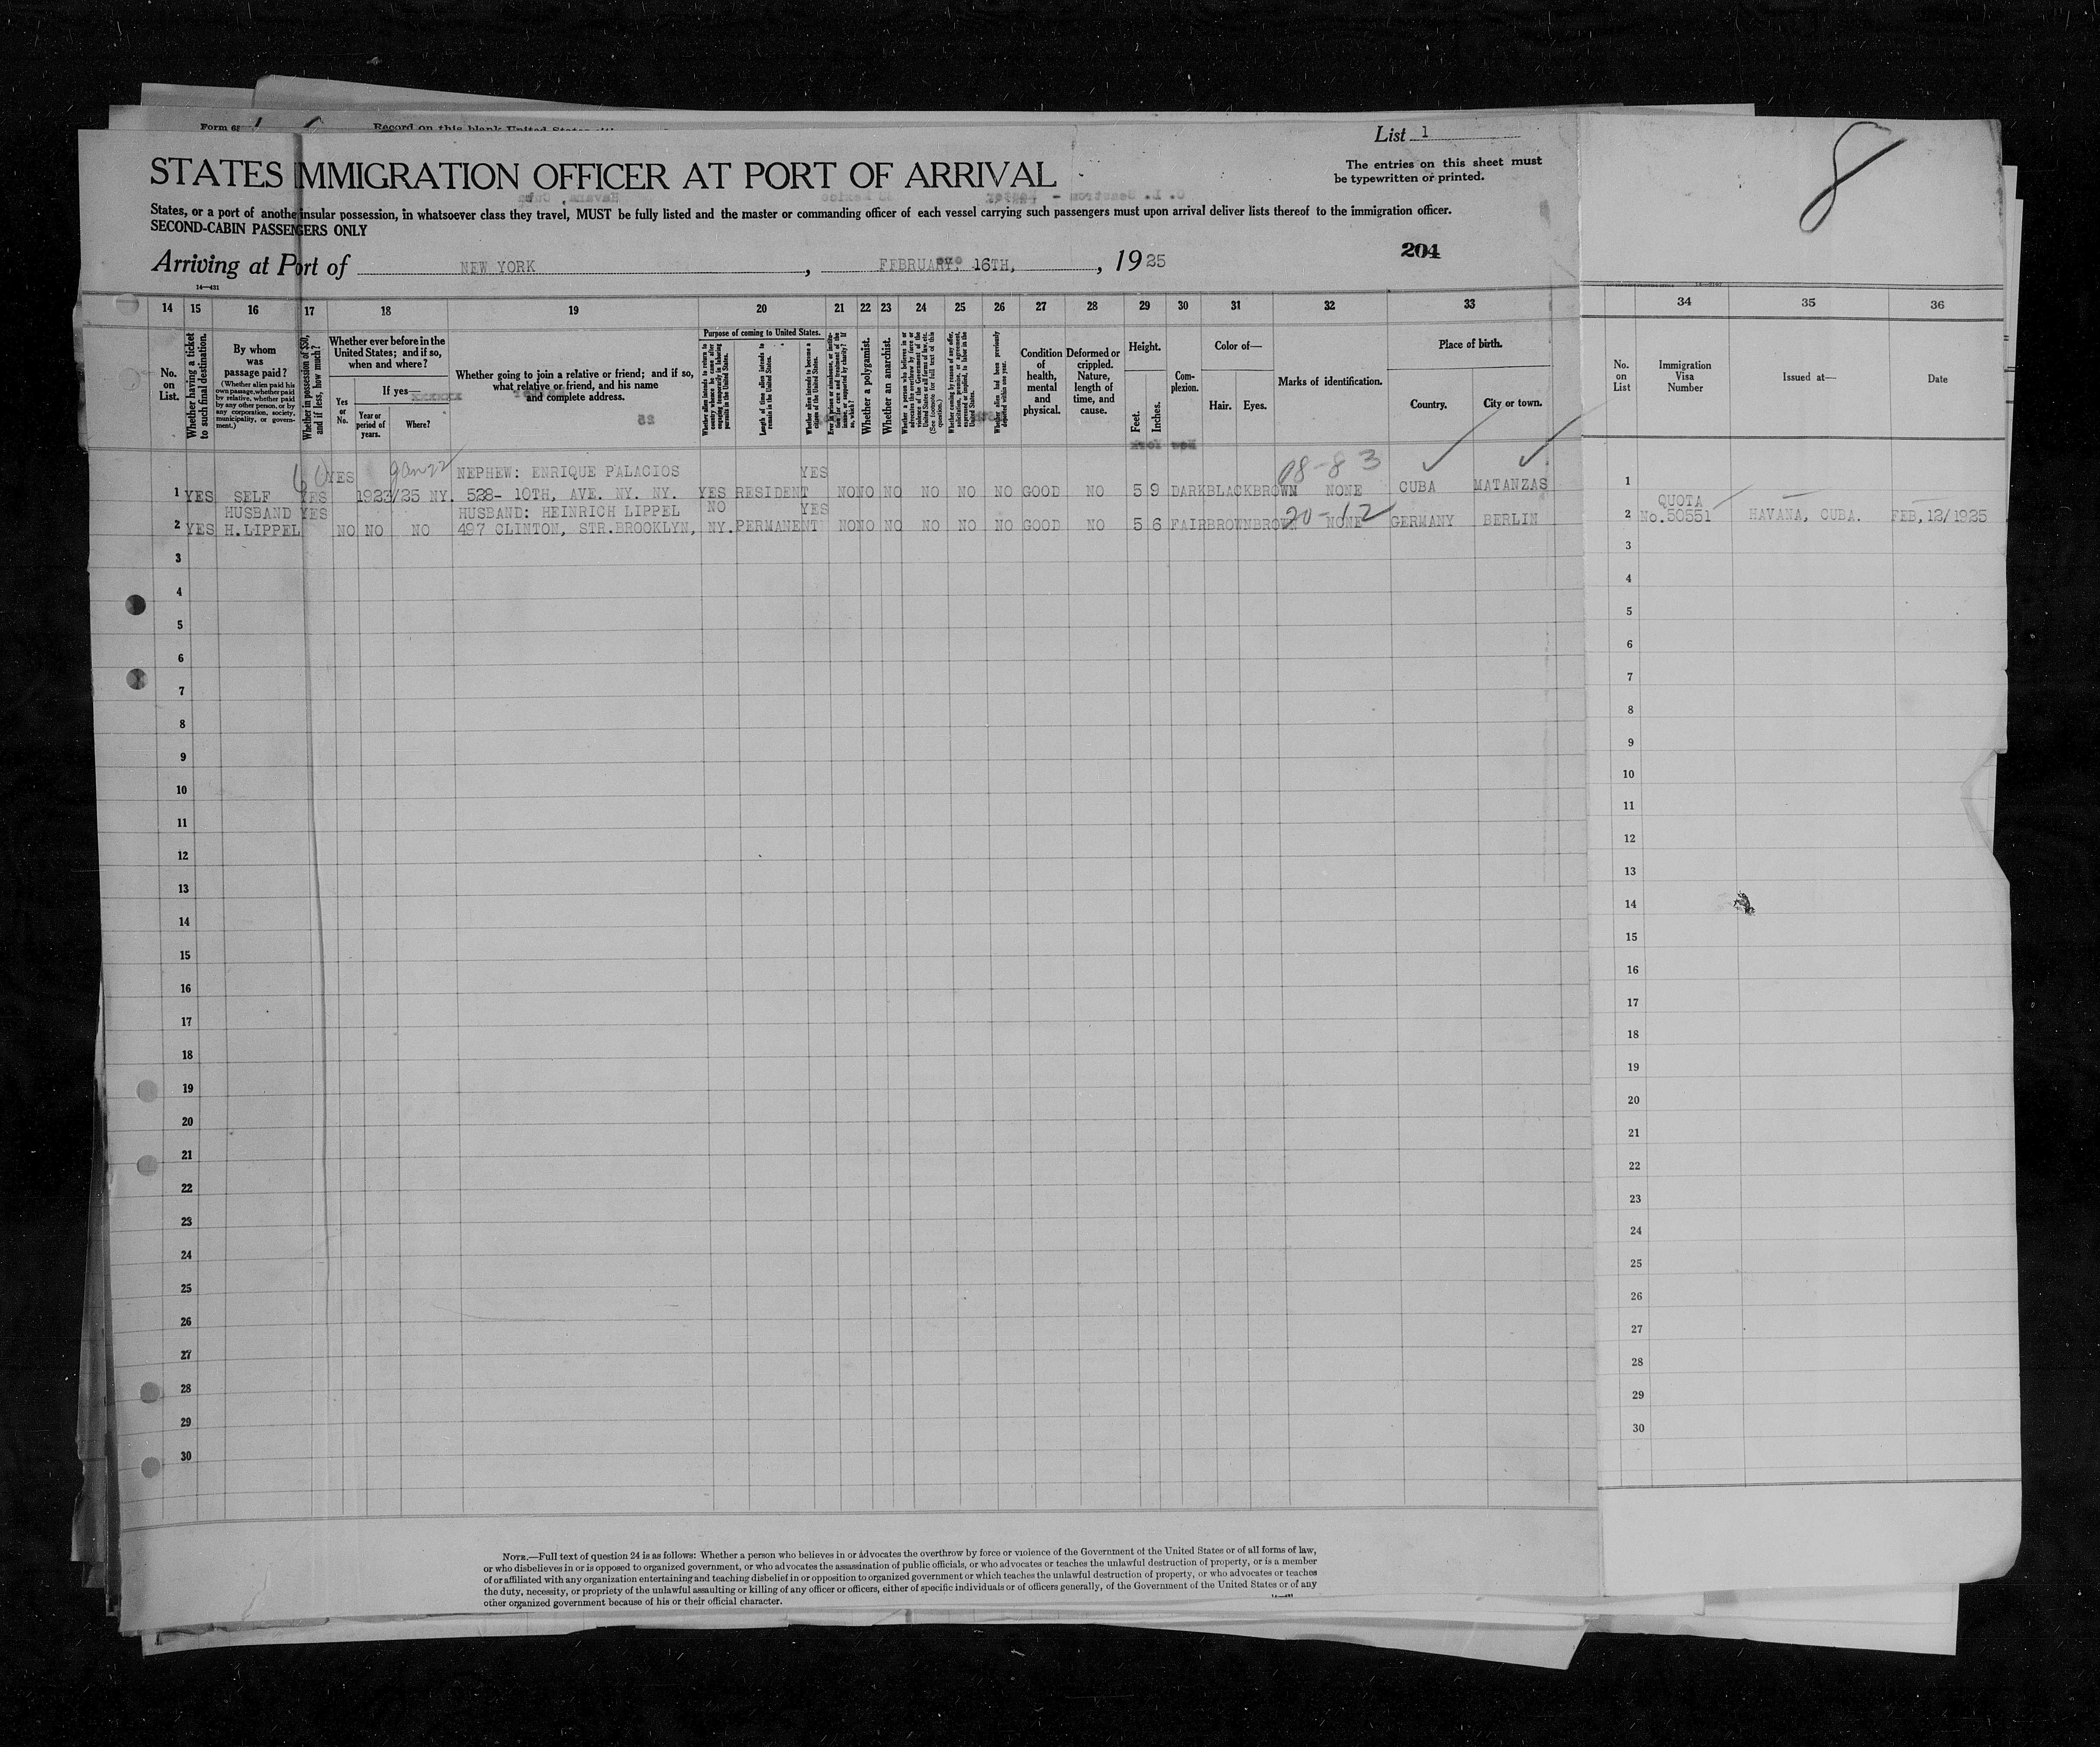 Form 68
Record on this blank United States
List 1
STATES IMMIGRATION OFFICER AT PORT OF ARRIVAL
The entries on this sheet must
be typewritten or printed.
8
States, or a port of another insular possession, in whatsoever class they travel, MUST be fully listed and the master or commanding officer of each vessel carrying such passengers must upon arrival deliver lists thereof to the immigration officer.
SECOND-CABIN PASSENGERS ONLY
204
Arriving at Port of NEW YORK, FEBRUARY, 16TH, , 1925
14—431
14 15 16 17 18 19 20 21 22 23 24 25 26 27 28 29 30 31 32 33 34 35 36
No. on List.
Whether having a ticket to such final destination.
By whom was passage paid?
(Whether alien paid his own passage, whether paid by relative, whether paid by any other person, or by any corporation, society, municipality, or government.)
Whether in possession of $50, and if less, how much?
Whether ever before in the United States; and if so, when and where?
If yes—
Yes or No.
Year or period of years.
Where?
Whether going to join a relative or friend; and if so, what relative or friend, and his name and complete address.
Purpose of coming to United States.
Whether alien intends to return to country whence he came after engaging temporarily in laboring pursuits in the United States.
Length of time alien intends to remain in the United States.
Whether alien intends to become a citizen of the United States.
Whether a polygamist.
Whether an anarchist.
Whether coming by reason of any offer, solicitation, promise, or agreement, expressed or implied, to labor in the United States.
Whether alien had been previously deported within one year.
Condition of health, mental and physical.
Deformed or crippled. Nature, length of time, and cause.
Height.
Feet.
Inches.
Complexion.
Color of—
Hair.
Eyes.
Marks of identification.
Place of birth.
Country.
City or town.
No. on List
Immigration Visa Number
Issued at—
Date
60 YES NEPHEW: ENRIQUE PALACIOS YES 08-83
1 YES SELF YES 1923/25 NY. 528- 10TH, AVE. NY. NY. YES RESIDENT NO NO NO NO NO NO GOOD NO 5 9 DARK BLACK BROWN NONE CUBA MATANZAS 1
HUSBAND YES HUSBAND: HEINRICH LIPPEL NO YES 20-12 QUOTA
2 YES H.LIPPEL NO NO NO 497 CLINTON, STR.BROOKLYN, NY. PERMANENT NO NO NO NO NO NO GOOD NO 5 6 FAIR BROWN BROWN NONE GERMANY BERLIN 2 No.50551 HAVANA, CUBA. FEB,12/1925
3 3
4 4
5 5
6 6
7 7
8 8
9 9
10 10
11 11
12 12
13 13
14 14
15 15
16 16
17 17
18 18
19 19
20 20
21 21
22 22
23 23
24 24
25 25
26 26
27 27
28 28
29 29
30 30
NOTE.—Full text of question 24 is as follows: Whether a person who believes in or advocates the overthrow by force or violence of the Government of the United States or of all forms of law,
or who disbelieves in or is opposed to organized government, or who advocates the assassination of public officials, or who advocates or teaches the unlawful destruction of property, or is a member
of or affiliated with any organization entertaining and teaching disbelief in or opposition to organized government or which teaches the unlawful destruction of property, or who advocates or teaches
the duty, necessity, or propriety of the unlawful assaulting or killing of any officer or officers, either of specific individuals or of officers generally, of the Government of the United States or of any
other organized government because of his or their official character.
14—431